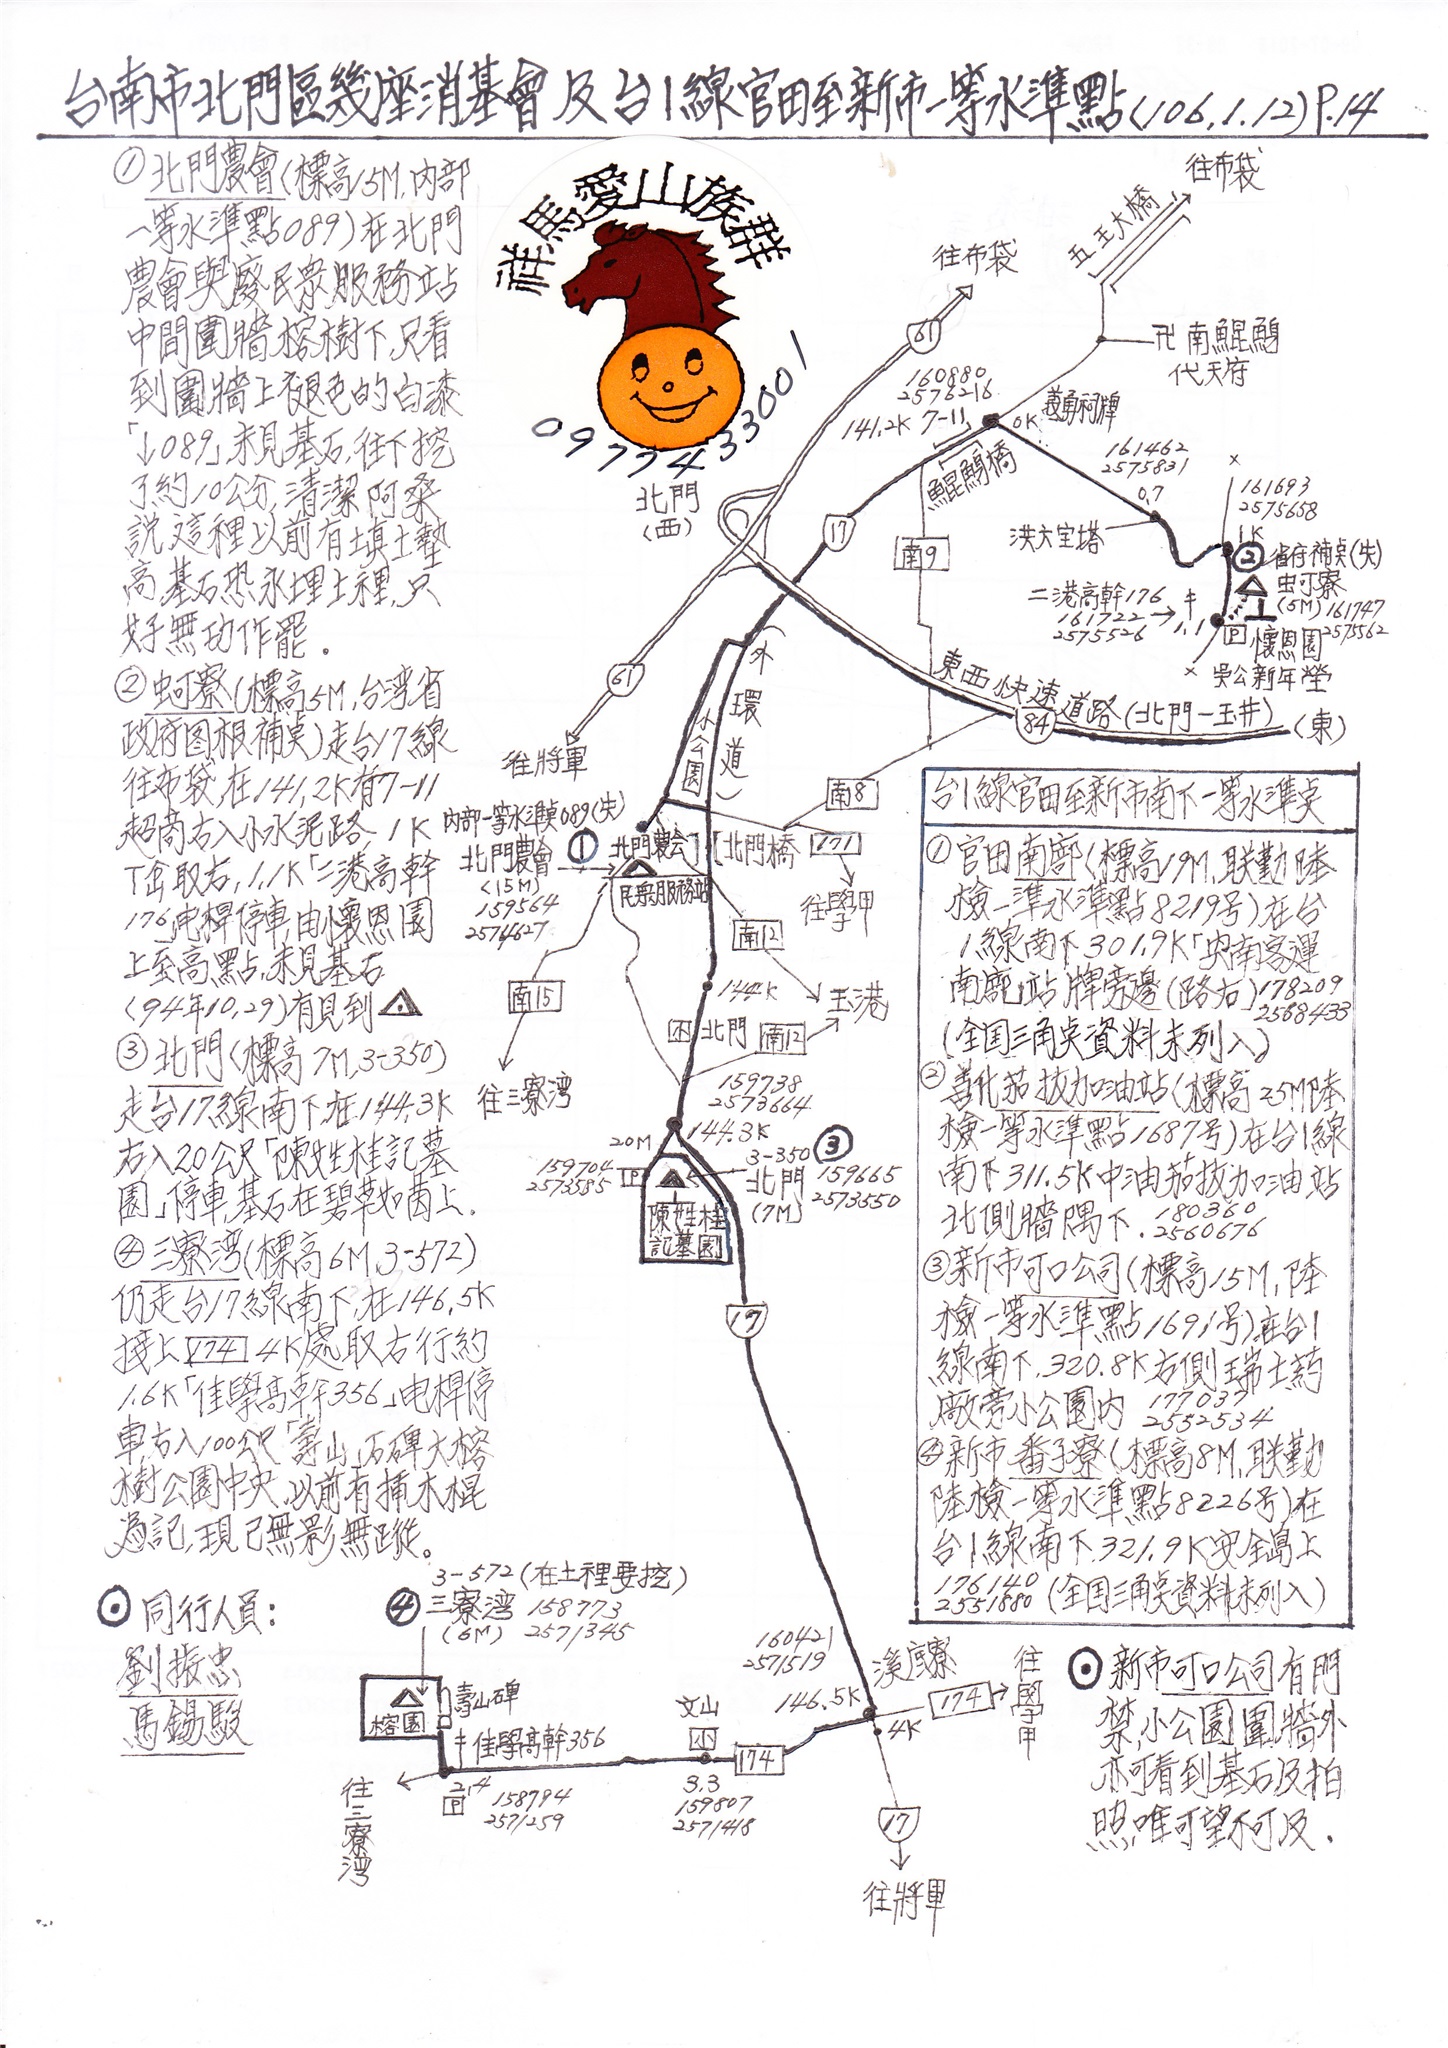 台南市北門區幾座消基會及台1線官田至新市一等水準點(106.1.12)P.14
①北門農會(標高15M,內部
一等水準點089)在北門
農會與廢民眾服務站
中間圍牆榕樹下,只看
到圍牆上褪色的白漆
「↓089」未見基石,往下挖
了約10公分,清潔阿桑
說這裡以前有填土墊
高,基石恐永埋土裡,只
好無功作罷.
②虫可寮(標高5M,台湾省
政府图根補桌)走台17線
往布袋,在141.2K有7-11
超商右入小水泥路,1K
T岔取右,1.1K「二港高幹
176」电桿停車,由懷恩園
上至高點,未見基石
(94年10.29)有見到
③北門(標高7M,3-350)
走台17線南下在144.3K
右入20公尺「陳姓桂記墓
園」停車,基石在碧草如茵上.
④三寮湾(標高6M,3-572)
仍走台17線南下,在146.5K
接上174 4K處取右行約
1.6K「佳學高幹356」电桿停
車,右入100公尺「壽山」石碑大榕
樹公園中央,以前有插木棍
為記,現已無影無蹤。
⊙同行人員:
劉振忠
馬錫駿
祥馬愛山族群
0977433001
往布袋
五王大橋
往布袋
61
卍南鯤鯓
代天府
160880
2576216
141.2K 7-11
0K
義勇祠牌
鯤鯓橋
161462
2575831
0.7
洪大宝塔
161693
2575658
1K
②省府補桌(失)
虫可寮
(5M)161747
2575562
二港高幹176
161722
2575526
1.1
P
懷恩園
吳公新年塋
北門
(西)
17
南9
東西快速道路(北門-玉井)
84
(東)
(外環道)
小公園
61
往將軍
南8
內部一等水準桌089(失)
北門農會
(15M)
159564
2574627
①
北門農会
民眾服務站
北門橋
171
往學甲
南12
玉港
南15
往三寮湾
144K
小
北門
南12
159738
2573664
20M
144.3K
159704
2573585
P
3-350
北門
(7M)
③
159665
2573550
陳姓桂
記墓園
17
台1線官田至新市南下一等水準桌
①官田南廍(標高19M,联勤陸
檢一準水準點8219号)在台
1線南下301.9K「央南客運
南廍」站牌旁邊(路右)178209
2568433
(全国三角桌資料未列入)
②善化茄拔加油站(標高25M陸
檢一等水準點1687号)在台1線
南下311.5K中油茄拔加油站
北側牆隅下.180360
2560676
③新市可口公司(標高15M,陸
檢一等水準點1691号)在台1
線南下.320.8K右側瑞士药
廠旁小公園內 177037
2552534
④新市番子寮(標高8M,联勤
陸檢一等水準點8226号)在
台1線南下.321.9K安全島上
176140
2551880(全国三角桌資料未列入)
3-572(在土裡要挖)
④三寮湾 158773
(6M) 2571345
榕園
壽山碑
佳學高幹356
2.4
P
158794
2571259
往三寮湾
文山
小
3.3
159807
2571418
174
160421
2571519
146.5K
溪底寮
4K
174
往學甲
17
往將軍
⊙新市可口公司有門
禁,小公園圍牆外
亦可看到基石及拍
照,唯可望不可及.